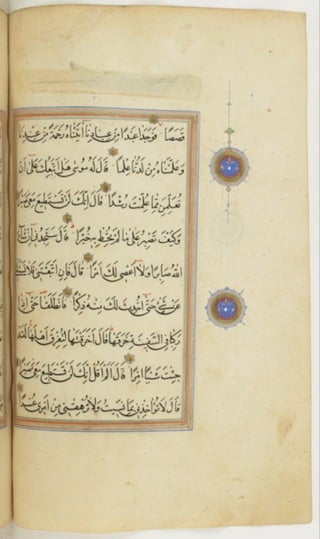 قَصَصًا فَوَجَدَا عَبْدًا مِنْ عِبَادِنَا آتَيْنَاهُ رَحْمَةً مِنْ عِنْدِنَا
وَعَلَّمْنَاهُ مِنْ لَدُنَّا عِلْمًا قَالَ لَهُ مُوسَى هَلْ أَتَّبِعُكَ عَلَى أَنْ
تُعَلِّمَنِ مِمَّا عُلِّمْتَ رُشْدًا قَالَ إِنَّكَ لَنْ تَسْتَطِيعَ مَعِيَ صَبْرًا
وَكَيْفَ تَصْبِرُ عَلَى مَا لَمْ تُحِطْ بِهِ خُبْرًا قَالَ سَتَجِدُنِي إِنْ شَاءَ
اللهُ صَابِرًا وَلَا أَعْصِي لَكَ أَمْرًا قَالَ فَإِنِ اتَّبَعْتَنِي فَلَا تَسْأَلْنِي
عَنْ شَيْءٍ حَتَّى أُحْدِثَ لَكَ مِنْهُ ذِكْرًا فَانْطَلَقَا حَتَّى إِذَا
رَكِبَا فِي السَّفِينَةِ خَرَقَهَا قَالَ أَخَرَقْتَهَا لِتُغْرِقَ أَهْلَهَا لَقَدْ
جِئْتَ شَيْئًا إِمْرًا قَالَ أَلَمْ أَقُلْ إِنَّكَ لَنْ تَسْتَطِيعَ مَعِيَ صَبْرًا
قَالَ لَا تُؤَاخِذْنِي بِمَا نَسِيتُ وَلَا تُرْهِقْنِي مِنْ أَمْرِي عُسْرًا